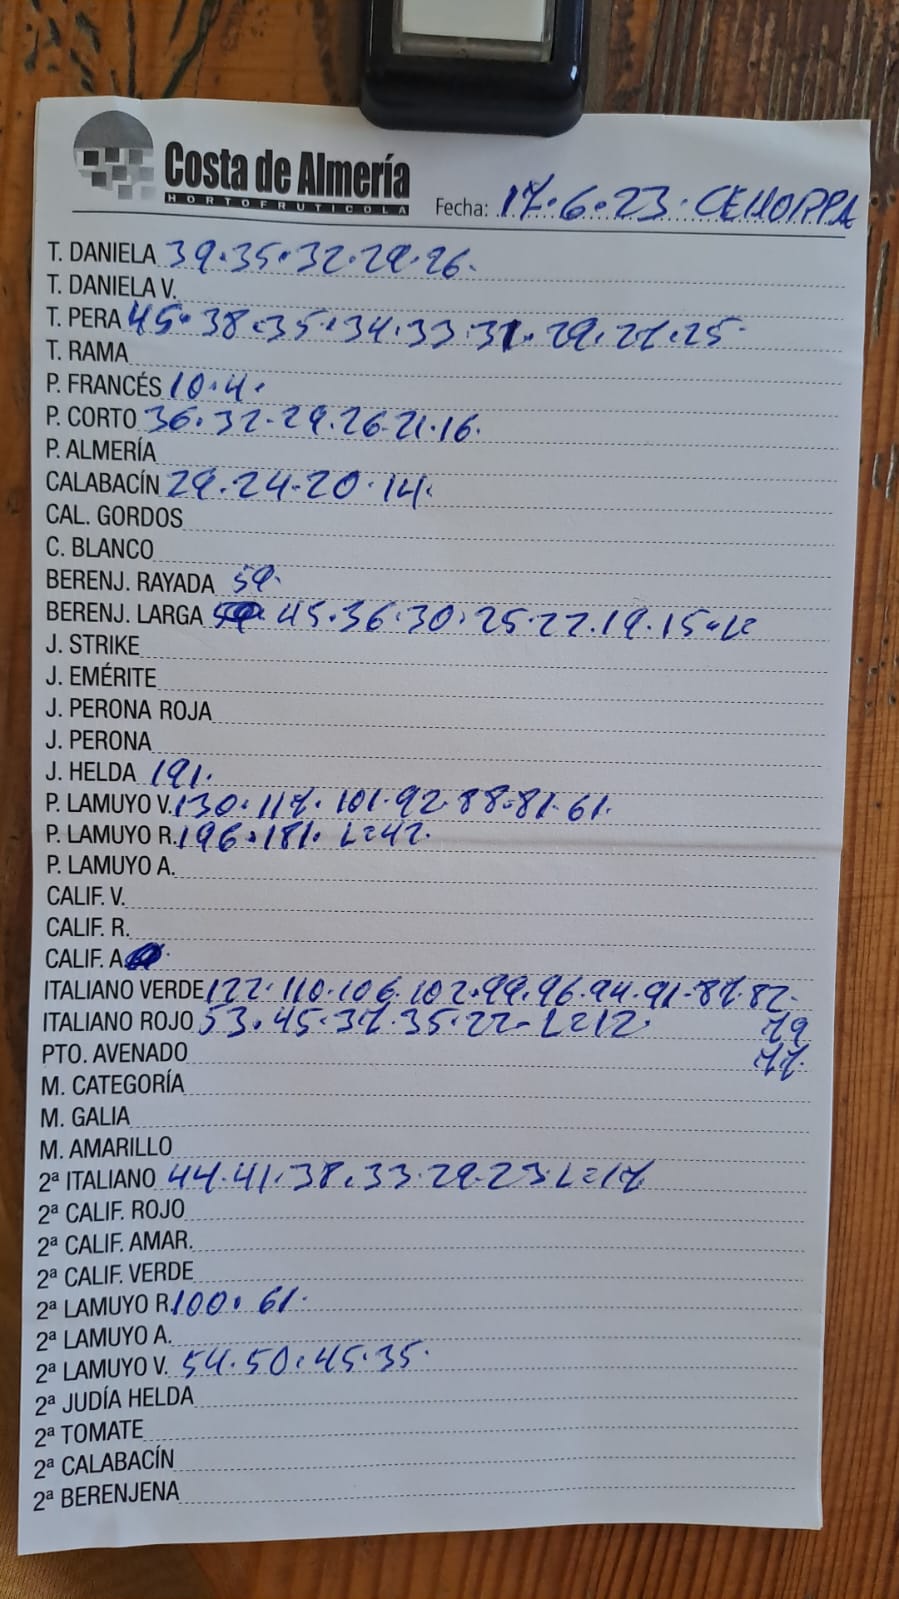 Costa de Almería
HORTOFRUTICOLA
Fecha: 17.6.23. CEHORPA
T. DANIELA 39.35.32.29.26.
T. DANIELA V.
T. PERA 45.38.35.34.33.31.29.27.25
T. RAMA
P. FRANCÉS 10.4.
P. CORTO 36.32.29.26.21.16.
P. ALMERÍA
CALABACÍN 29.24.20.14.
CAL. GORDOS
C. BLANCO
BERENJ. RAYADA 59.
BERENJ. LARGA 45.36.30.25.22.19.15.12
J. STRIKE
J. EMÉRITE
J. PERONA ROJA
J. PERONA
J. HELDA 191.
P. LAMUYO V. 130.117.101.92.88.81.61.
P. LAMUYO R. 196.181. L=42.
P. LAMUYO A.
CALIF. V.
CALIF. R.
CALIF. A
ITALIANO VERDE 122.110.106.102.99.96.94.91.87.82.
ITALIANO ROJO 53.45.37.35.22. L=12. 79
PTO. AVENADO 77.
M. CATEGORÍA
M. GALIA
M. AMARILLO
2ª ITALIANO 44.41.38.33.29.23 L=17
2ª CALIF. ROJO
2ª CALIF. AMAR.
2ª CALIF. VERDE
2ª LAMUYO R. 100.61.
2ª LAMUYO A.
2ª LAMUYO V. 54.50.45.35.
2ª JUDÍA HELDA
2ª TOMATE
2ª CALABACÍN
2ª BERENJENA